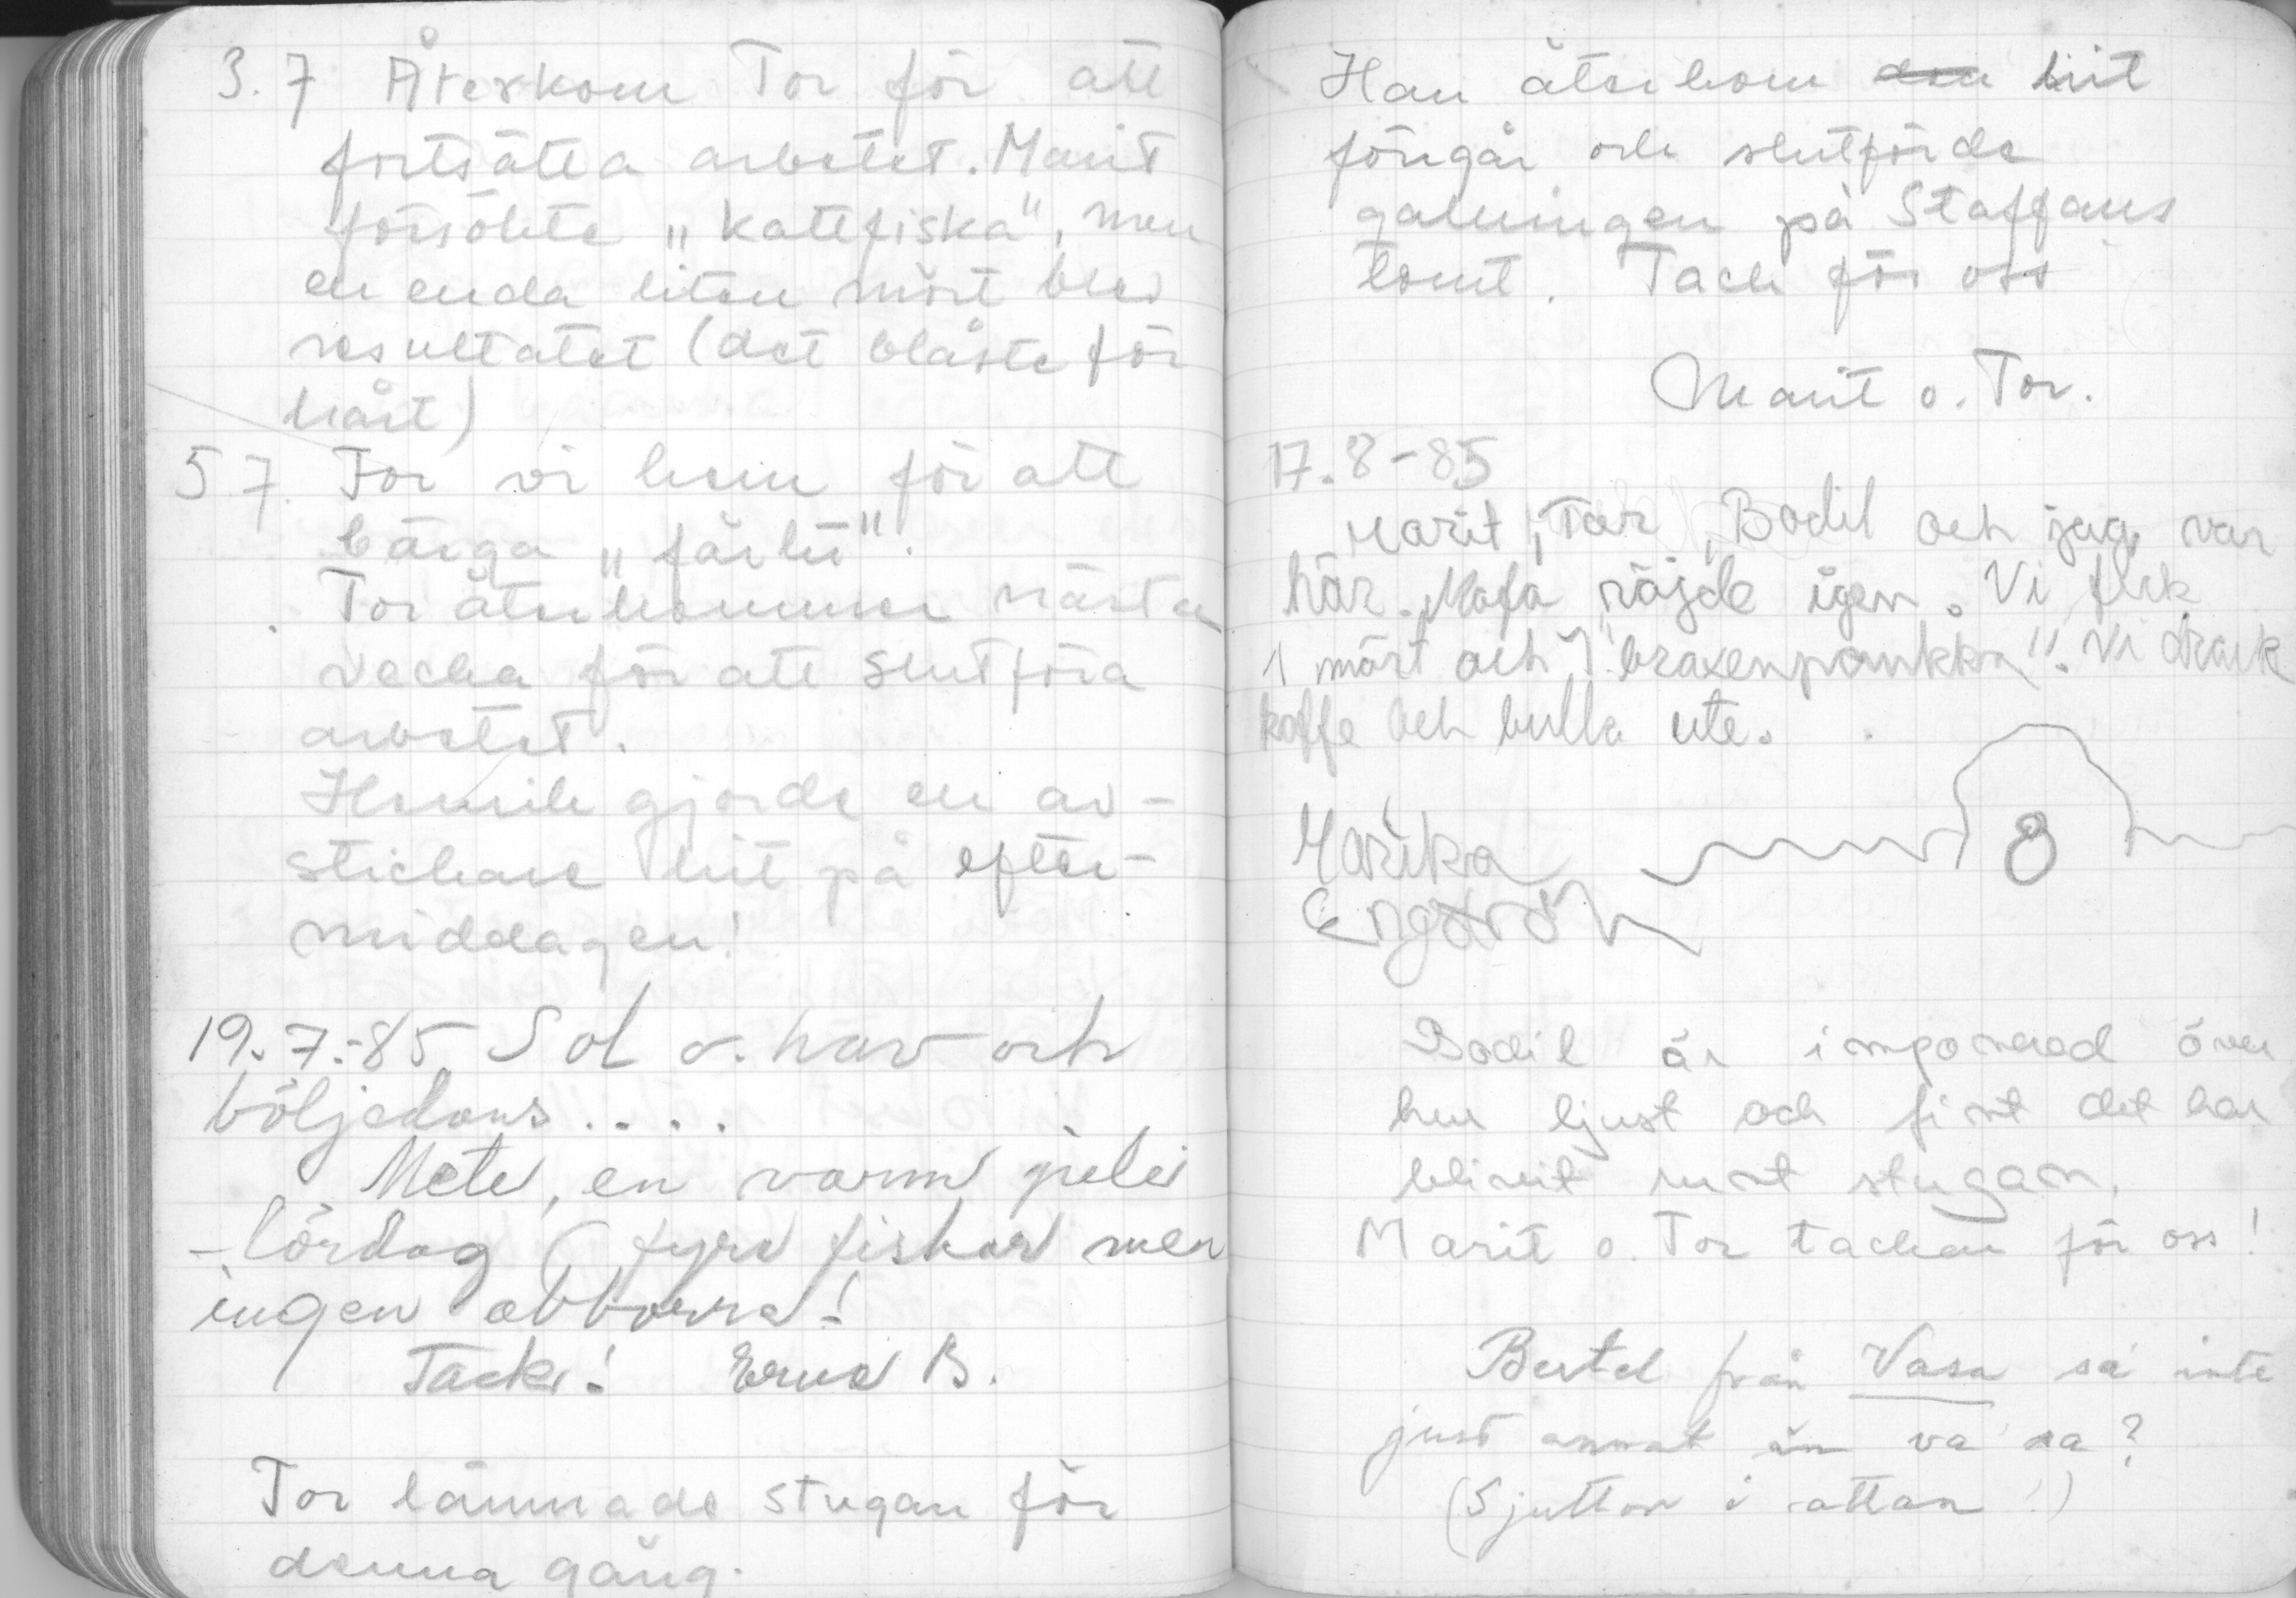 3.7 Återkom Tor för att
fortsätta arbetet. Marit
försökte „kattfiska", men
en enda liten mört blev
resultatet (det blåste för
hårt)
5.7. For vi hem för att
bärga „färhö".
Tor återkommer nästa
vecka för att slutföra
arbetet.
Henrik gjorde en av-
stickare hit på efter-
middagen!
19.7.-85 Sol o. hav och
böljedans....
Mete, en varm juli
-lördag (fyra fiskar men
ingen abborre!
Tack! Erna B.
Tor lämnade stugan för
denna gång.
Han återkom den hit
förrgår och slutförde
gallringen på Staffans
tomt. Tack för oss
Marit o. Tor.
17.8-85
Marit, Tor, Bodil och jag var
här. Mofa röjde igen. Vi fick
1 mört och 1 "braxenpankka". Vi drack
kaffe och bulla ute.
8
Marika
Bodil är imponerad över
hur ljust och fint det har
blivit runt stugan.
Marit o. Tor tackar för oss!
Bertel från Vasa sa inte
just annat än va sa?
(Sjutton i attan!)